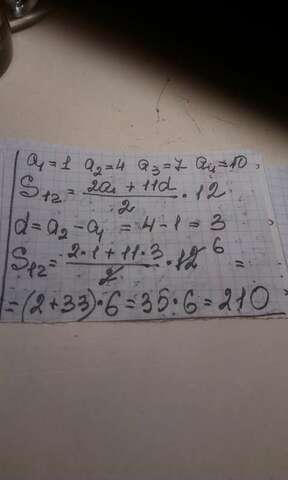 a₁=1 a₂=4 a₃=7 a₄=10,
S₁₂= (2a₁+11d)/2 · 12
d=a₂-a₁ =4-1=3
S₁₂= (2·1+11·3)/2 · 12 6 =
=(2+33)·6=35·6=210